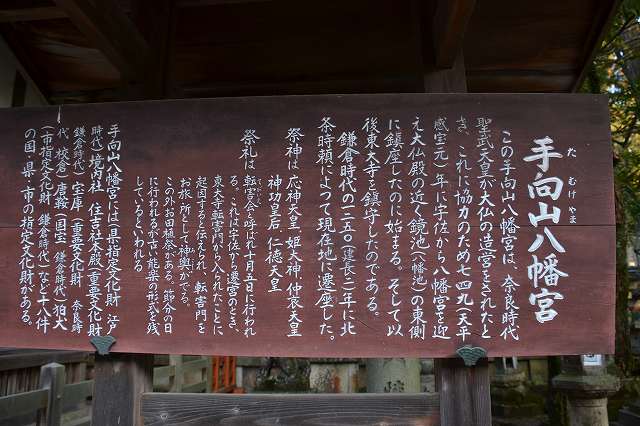 手向山八幡宮
たむけやま
この手向山八幡宮は、奈良時代
聖武天皇が大仏の造営をされたと
き、これに協力のため七四九(天平
感宝元)年に宇佐から八幡宮を迎
え大仏殿の近く鏡池(八幡池)の東側
に鎮座したのに始まる。そして以
後東大寺を鎮守したのである。
鎌倉時代の一二五〇(建長二)年に北
条時頼によって現在地に遷座した。
祭神は、応神天皇、姫大神、仲哀天皇
神功皇后、仁徳天皇
祭礼は、転害会と呼ばれ十月五日に行われ
る。これは宇佐から遷宮のとき、
東大寺転害門から入られたことに
起因すると伝えられ、転害門を
お旅所として神輿がでる。
この外お田植祭がある。(節分の日
に行われるが古い能楽の形式を残
しているといわれる。
手向山八幡宮には(県指定文化財 江戸
時代)境内社 住吉社本殿(重要文化財
鎌倉時代)宝庫(重要文化財 奈良時
代)校倉)唐鞍(国宝 鎌倉時代)狛犬
(市指定文化財 鎌倉時代)など十八件
の国・県・市の指定文化財がある。